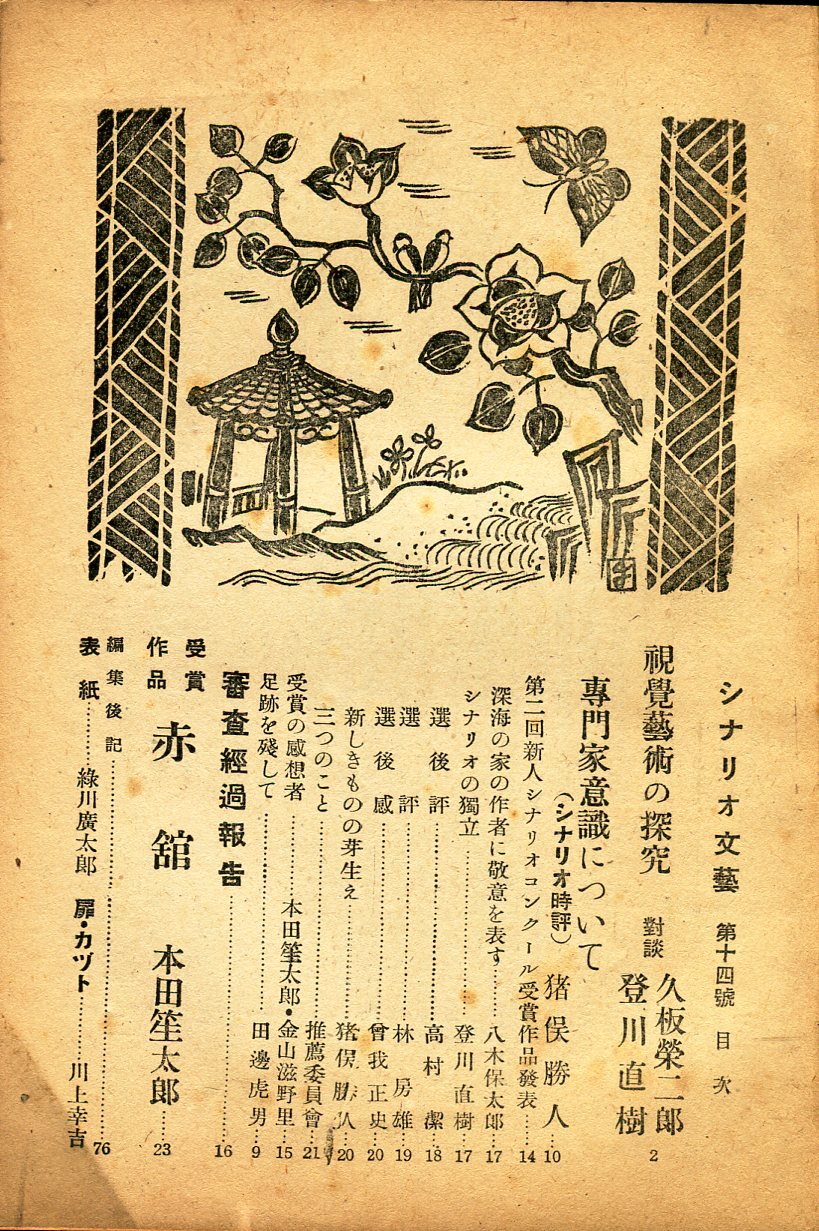 シナリオ文藝 第十四號 目次
視覺藝術の探究 對談 久板榮二郎 登川直樹 2
專門家意識について(シナリオ時評) 猪俣勝人 10
第二回新人シナリオコンクール受賞作品發表 14
深海の家の作者に敬意を表す 八木保太郎 17
シナリオの獨立 登川直樹 17
選後評 高村潔 18
選評 林房雄 19
選後感 曾我正史 20
新しきものの芽生え 猪俣勝人 20
三つのこと 推薦委員會 21
受賞の感想者 本田笙太郎・金山滋野里 15
足跡を殘して 田邊虎男 9
審査經過報告 16
受賞作品 赤舘 本田笙太郎 23
編集後記 76
表紙 綠川廣太郎 扉・カヅト 川上幸吉